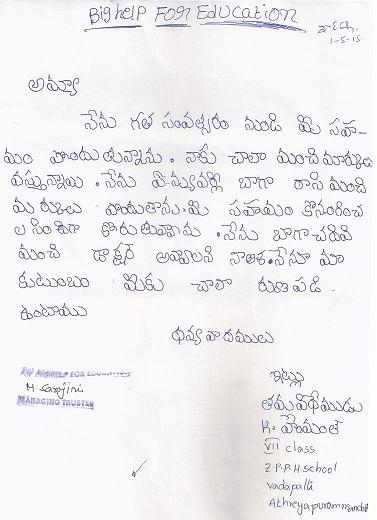 BIG HELP FOR EDUCATION
1-5-15
అమ్మా
నేను గత సంవత్సరం నుండి మీ సహా-
యం పొందుతున్నాను. నాకు చాలా మంచి మార్కులు
వస్తున్నాయి. నేను బాగా రాసి మంచి
మార్కులు పొందుతాను. మీ సహాయం కొనసాగించ
వలసిందిగా కోరుతున్నాను. నేను బాగా చదివి
మంచి డాక్టర్ అవ్వాలని నా ఆశ. నేను మా
కుటుంబం మీకు చాలా రుణపడి
ఉంటాము
ధన్యవాదములు
ఇట్లు
తమ విధేయుడు
K. హేమంత్
VII class
Z.P.P.H school
vadapalli
Athreyapuram mandal
For BIGHELP FOR EDUCATION
M. Sarojini
MANAGING TRUSTEE